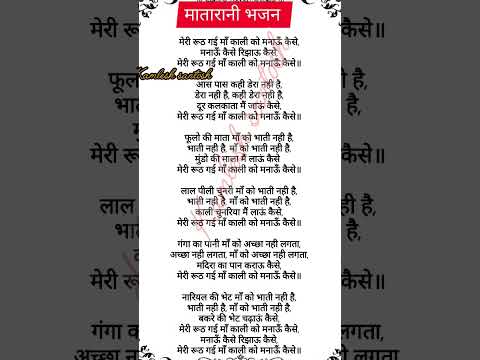 मातारानी भजन
मेरी रूठ गई माँ काली को मनाऊँ कैसे,
मनाऊँ कैसे रिझाऊ कैसे,
मेरी रूठ गई माँ काली को मनाऊँ कैसे॥
Kamlesh santosh
आस पास कही डेरा नही है,
डेरा नही है, कही डेरा नही है,
दूर कलकाता मैं जाऊं कैसे,
मेरी रूठ गई माँ काली को मनाऊँ कैसे॥
फूलो की माता माँ को भाती नही है,
भाती नही है, माँ को भाती नही है,
मुंडो की माला मैं लाऊं कैसे
मेरी रूठ गई माँ काली को मनाऊँ कैसे॥
लाल पीली चुनरी माँ को भाती नही है,
भाती नही है, माँ को भाती नही है,
काली चुनरिया मैं लाऊं कैसे,
मेरी रूठ गई माँ काली को मनाऊँ कैसे॥
गंगा का पानी माँ को अच्छा नही लगता,
अच्छा नही लगता, माँ को अच्छा नही लगता,
मदिरा का पान कराऊ कैसे,
मेरी रूठ गई माँ काली को मनाऊँ कैसे॥
नारियल की भेट माँ को भाती नही है,
भाती नही है, माँ को भाती नही है,
बकरे की भेट चढ़ाऊं कैसे,
मेरी रूठ गई माँ काली को मनाऊँ कैसे,
मनाऊँ कैसे रिझाऊ कैसे,
मेरी रूठ गई माँ काली को मनाऊँ कैसे॥